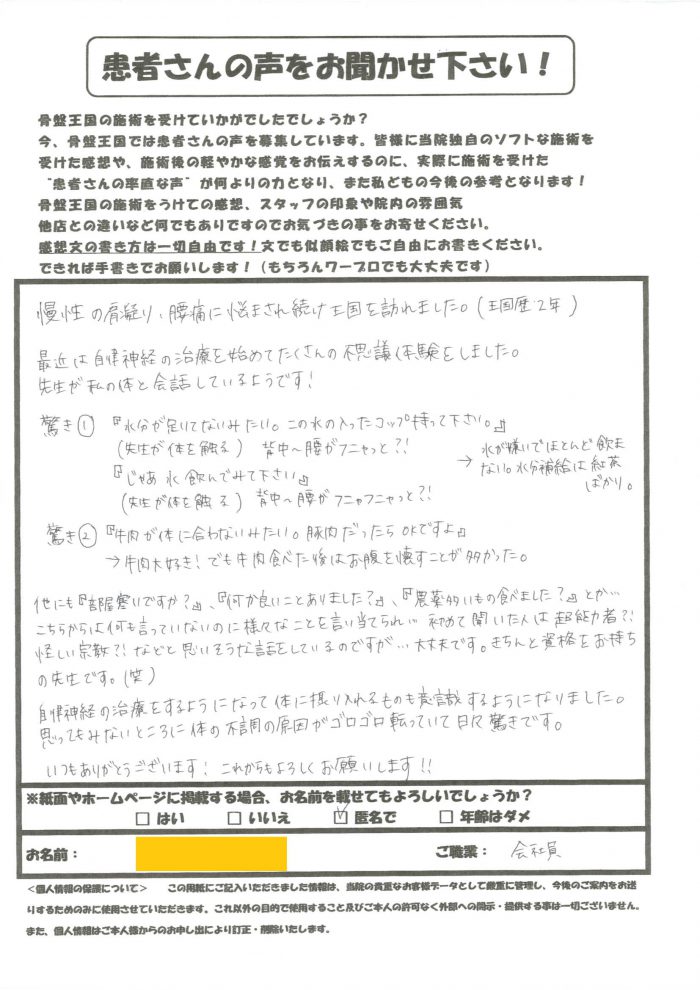 患者さんの声をお聞かせ下さい！
骨盤王国の施術を受けていかがでしたでしょうか？
今、骨盤王国では患者さんの声を募集しています。皆様に当院独自のソフトな施術を
受けた感想や、施術後の軽やかな感覚をお伝えするのに、実際に施術を受けた
“患者さんの率直な声”が何よりの力となり、また私どもの今後の参考となります！
骨盤王国の施術をうけての感想、スタッフの印象や院内の雰囲気
他店との違いなど何でもありですのでお気づきの事をお寄せください。
感想文の書き方は一切自由です！文でも似顔絵でもご自由にお書きください。
できれば手書きでお願いします！（もちろんワープロでも大丈夫です）
慢性の肩凝り、腰痛に悩まされ続け王国を訪れました。（王国歴2年）
最近は自律神経の治療を始めてたくさんの不思議体験をしました。
先生が私の体と会話しているようです！
驚き① 『水分が足りてないみたい。この水の入ったコップ持って下さい。』
（先生が体を触る） 背中〜腰がフニャっと?!
『じゃあ水飲んでみて下さい』
（先生が体を触る） 背中〜腰がフニャフニャっと?!
→ 水が嫌いでほとんど飲ま
ない。水分補給は紅茶
ばかり。
驚き② 『牛肉が体に合わないみたい。豚肉だったらOKですよ』
→牛肉大好き！でも牛肉食べた後はお腹を壊すことが多かった。
他にも『部屋寒いですか？』、『何か良いことありました？』、『農薬多いもの食べました？』とか…
こちらからは何も言っていないのに様々なことを言い当てられ… 初めて聞いた人は超能力者?!
怪しい宗教?! などと思いそうな話をしているのですが…大丈夫です。きちんと資格をお持ち
の先生です。（笑）
自律神経の治療をするようになって体に摂り入れるものも意識するようになりました。
思ってもみないところに体の不調の原因がゴロゴロ転っていて日々驚きです。
いつもありがとうございます！これからもよろしくお願いします!!
※紙面やホームページに掲載する場合、お名前を載せてもよろしいでしょうか？
□ はい □ いいえ ☑ 匿名で □ 年齢はダメ
お名前： ご職業： 会社員
＜個人情報の保護について＞ この用紙にご記入いただきました情報は、当院の貴重なお客様データとして厳重に管理し、今後のご案内をお送
りするためのみに使用させていただきます。これ以外の目的で使用すること及びご本人の許可なく外部への開示・提供する事は一切ございません。
また、個人情報はご本人様からのお申し出により訂正・削除いたします。